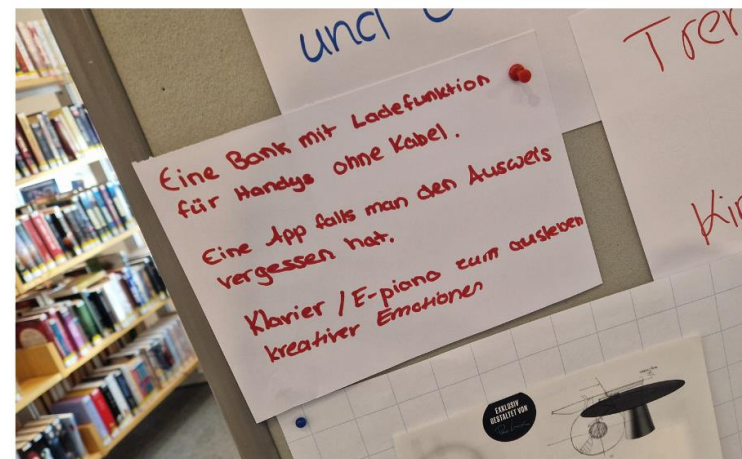 und
Trer
Eine Bank mit Ladefunktion
für Handys ohne Kabel.
Eine App falls man den Ausweis
vergessen hat.
Klavier / E-piano zum ausleben
kreativer Emotionen
Kin
EXKLUSIV
GESTALTET VON